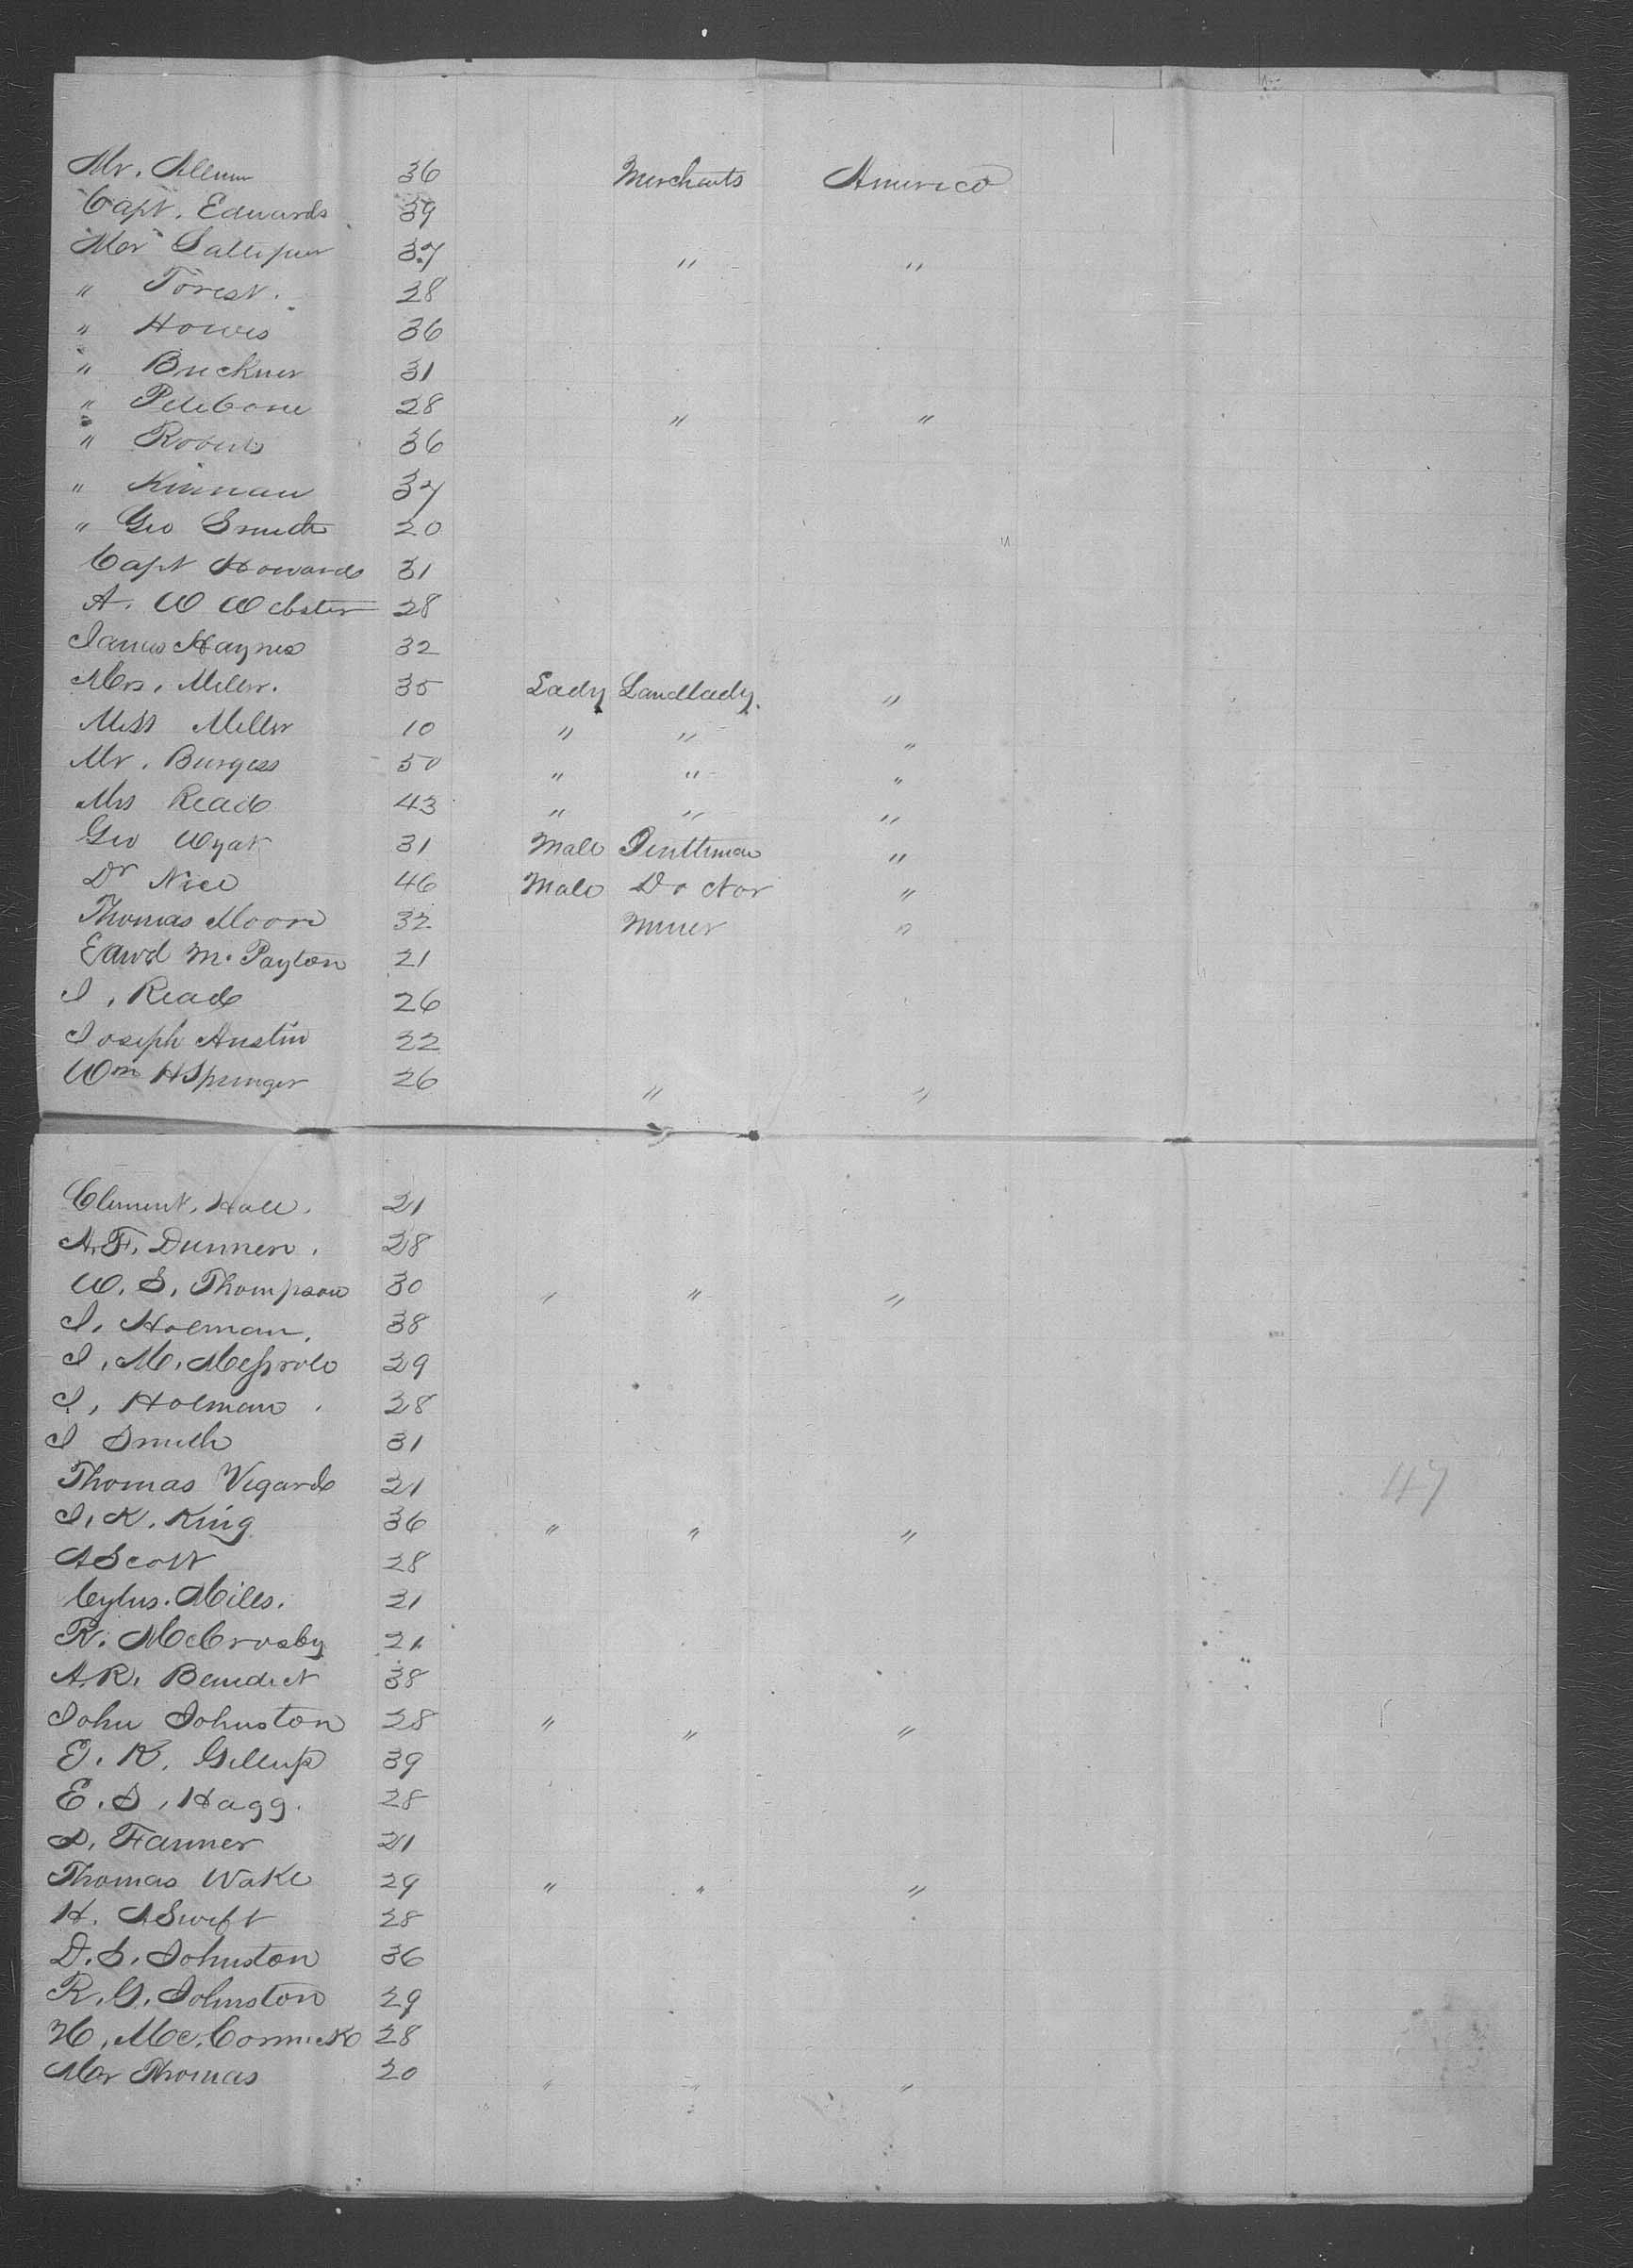 Mr. Allum 36 Merchants America
Capt. Edwards 39
Mr 37 " "
" Forest. 28
" Howes 36
" Bruckner 31
" Petebone 28 " "
" Roberts 36
" Kinnan 37
" Geo Smith 20
Capt Howards 31
A. W Webster 28
James Haynes 32
Mrs. Miller. 35 Lady Landlady. "
Miss Miller 10 " " "
Mr. Burgess 50 " " "
Mrs Read 43 " " "
Geo Wyat 31 Male Gentleman "
Dr Nice 46 Male Doctor "
Thomas Moore 32 Miner "
Edwd M. Payton 21
J. Read 26
Joseph Austin 22
Wm H Springer 26 " "
Clement. Hall. 21
A. F. Dunnen. 28
W. S. Thompson 30 " " "
J. Holman. 38
J. M. 29
J. Holman. 28
J Smith 31
Thomas Vegard 21
J. K. King 36 " " "
A Scott 28
Cylus. Miles. 21
R. McCrosby 21
A. R. Benedict 38
John Johnston 28 " " "
E. K. Gillup 39
E. S. Hagg. 28
S. Fanner 21
Thomas Wake 29 " " "
H. A Swift 28
D. S. Johnston 36
R. G. Johnston 29
H. Mc. Cormick 28
Mr Thomas 20 " " "
47